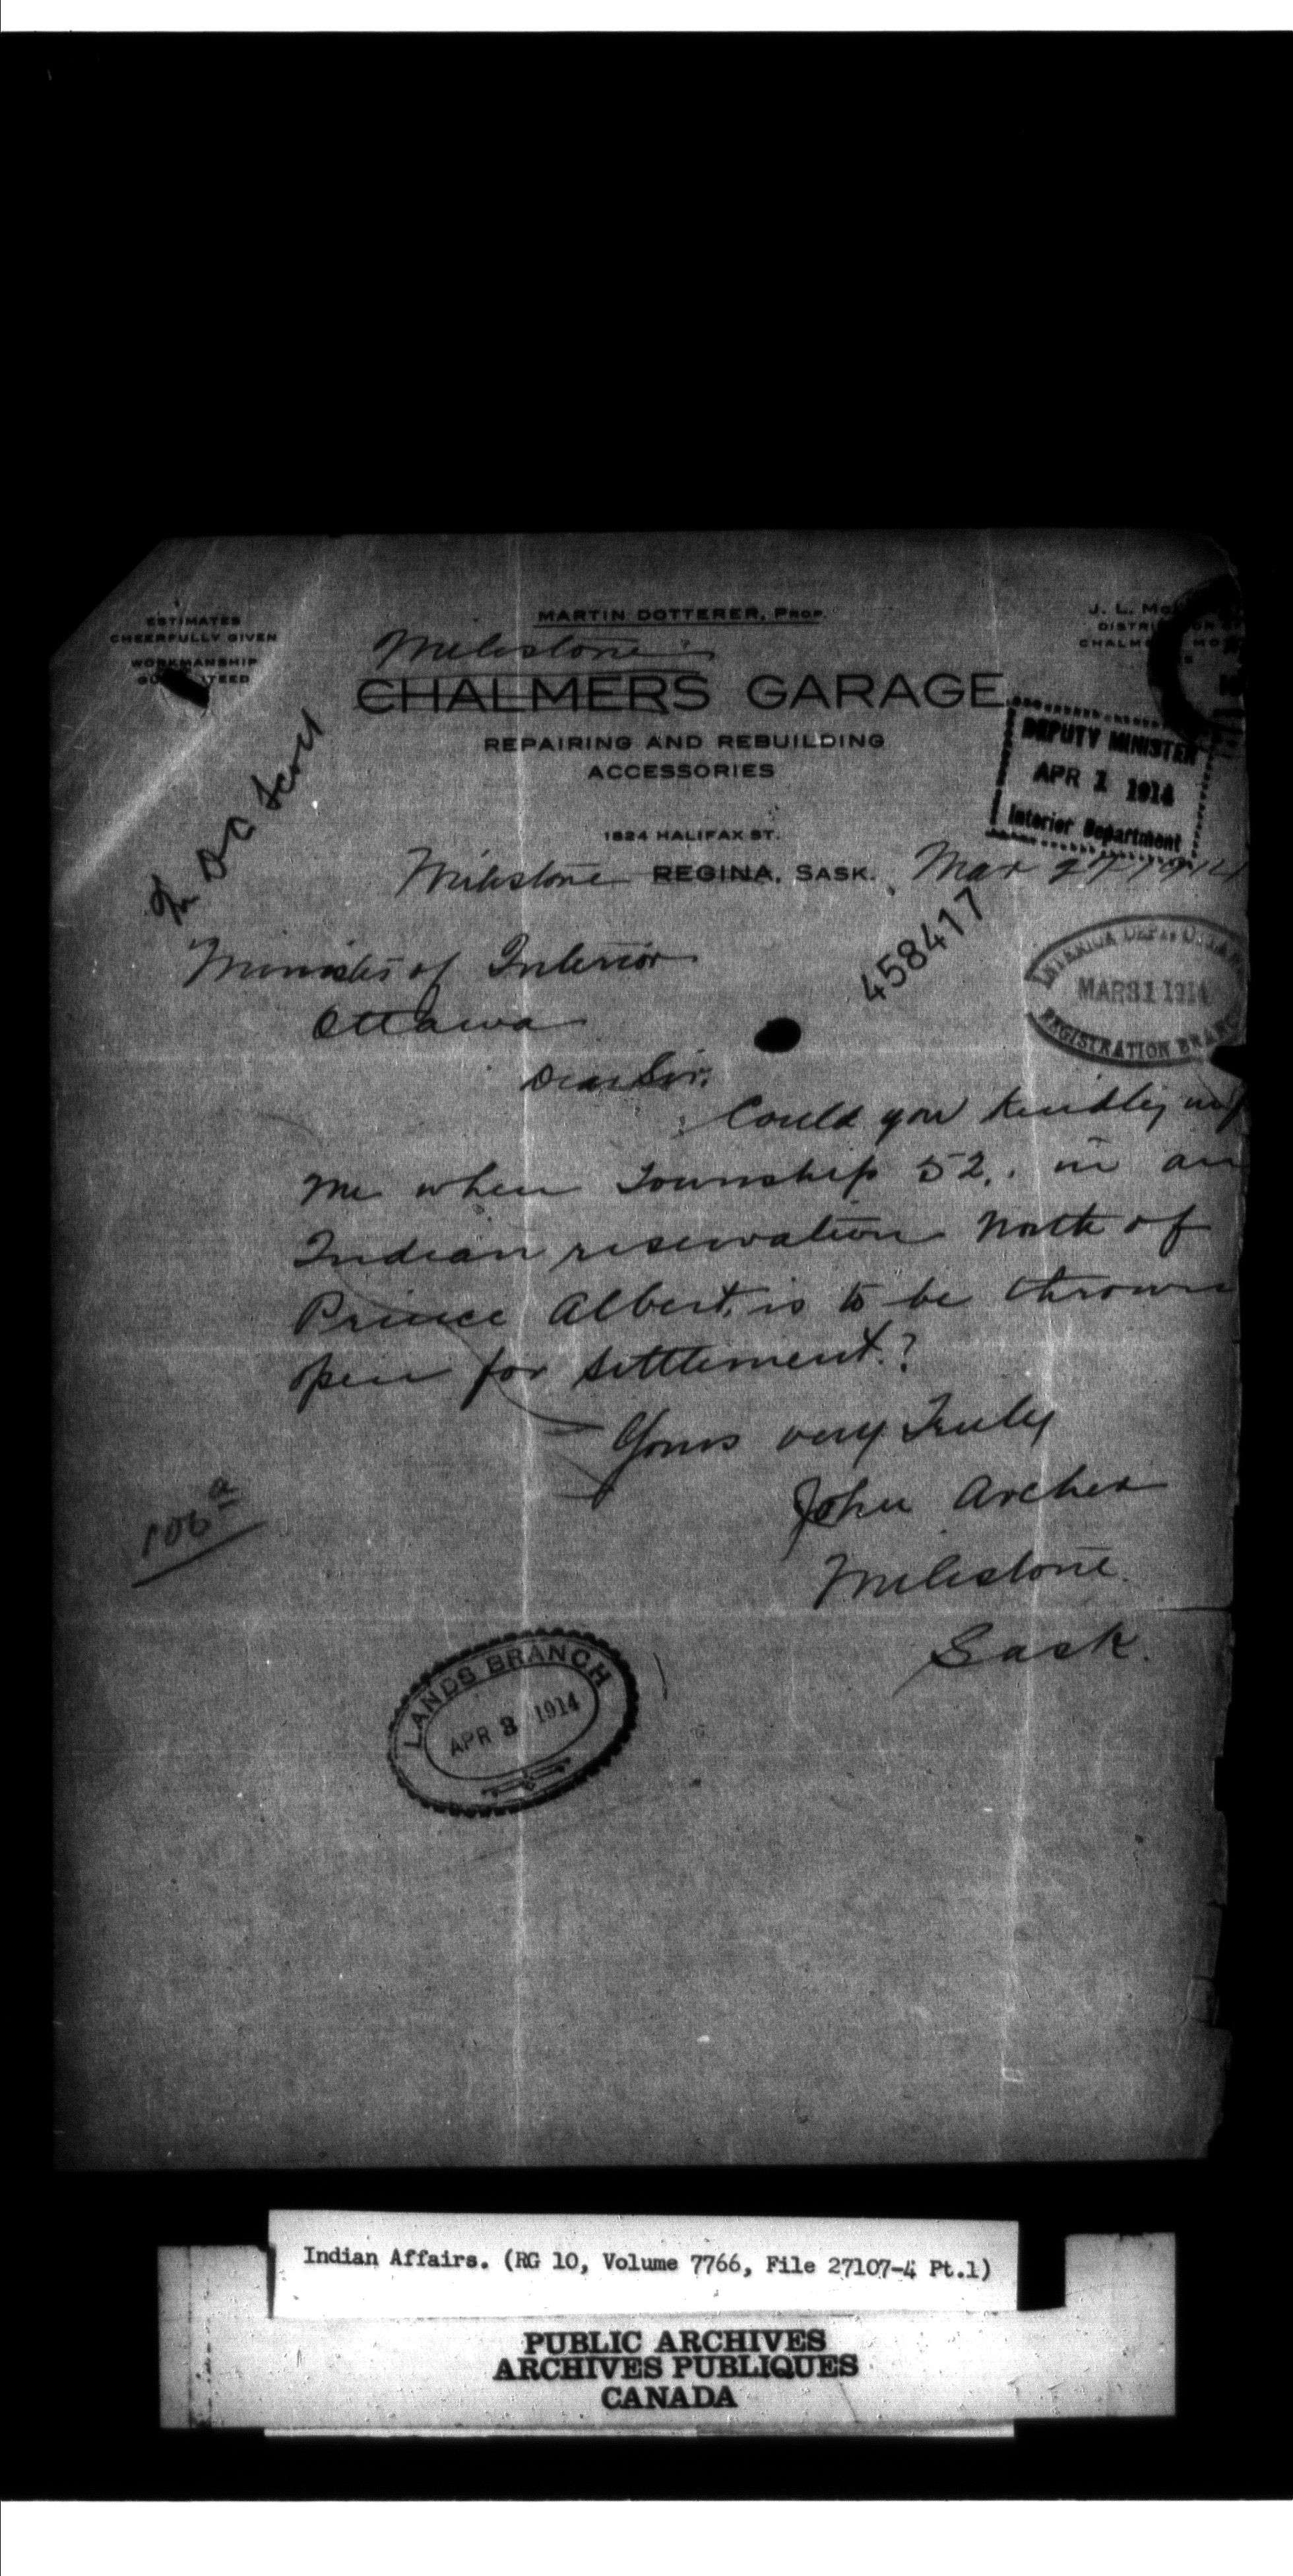 ESTIMATES
CHEERFULLY GIVEN
WORKMANSHIP
MARTIN DOTTERER, PROP.
J. L. Mc
CHALMERS GARAGE
Milestone
REPAIRING AND REBUILDING
ACCESSORIES
1824 HALIFAX ST.
Milestone REGINA, SASK. Mar 27 1914
DEPUTY MINISTER
APR 1 1914
Interior Department
D C Scott
458417
INTERIOR DEPT. OTTAWA
MAR 31 1914
REGISTRATION BRANCH
Minister of Interior
Ottawa
Dear Sir.
Could you kindly
me when Township 52, in an
Indian reservation North of
Prince Albert, is to be thrown
open for settlement.?
Yours very Truly
John Archer
Milestone.
Sask.
106 a
LANDS BRANCH
APR 3 1914
Indian Affairs. (RG 10, Volume 7766, File 27107-4 Pt.1)
PUBLIC ARCHIVES
ARCHIVES PUBLIQUES
CANADA